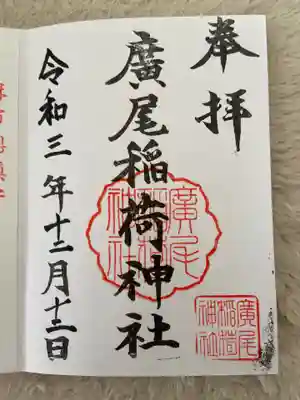 奉拝
廣尾稲荷神社
廣尾
稲荷
神社
廣尾
稲荷
神社
令和三年十二月十二日